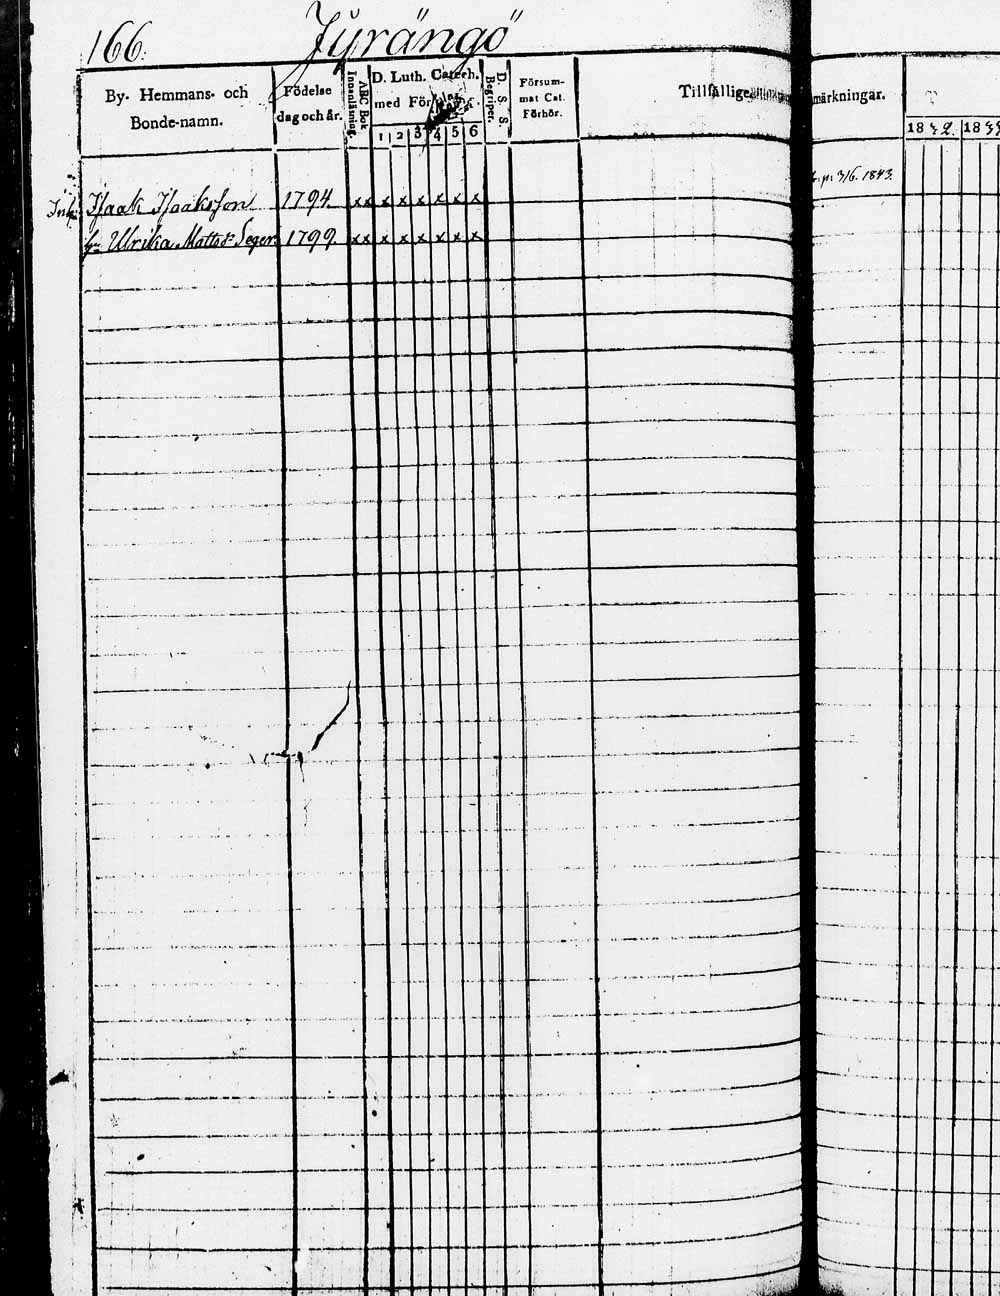 166. Jyrängö
By- Hemmans- och Bonde-namn.
Födelse dag och år.
ABC Bok Innanläsning.
D. Luth. Catech. med
1 2 3 4 5 6
D. S. S. Begriper.
Försummat Cat. Förhör.
Tillfällige märkningar.
18 18
3/6. 1843.
Inh: Isaak Isaaksson 1794 x x x x x x x x
Ulrika Mattsdr Seger 1799 x x x x x x x x